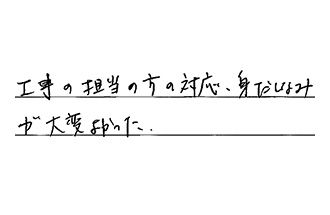 工事の担当の方の対応、身だしなみ
が大変よかった.